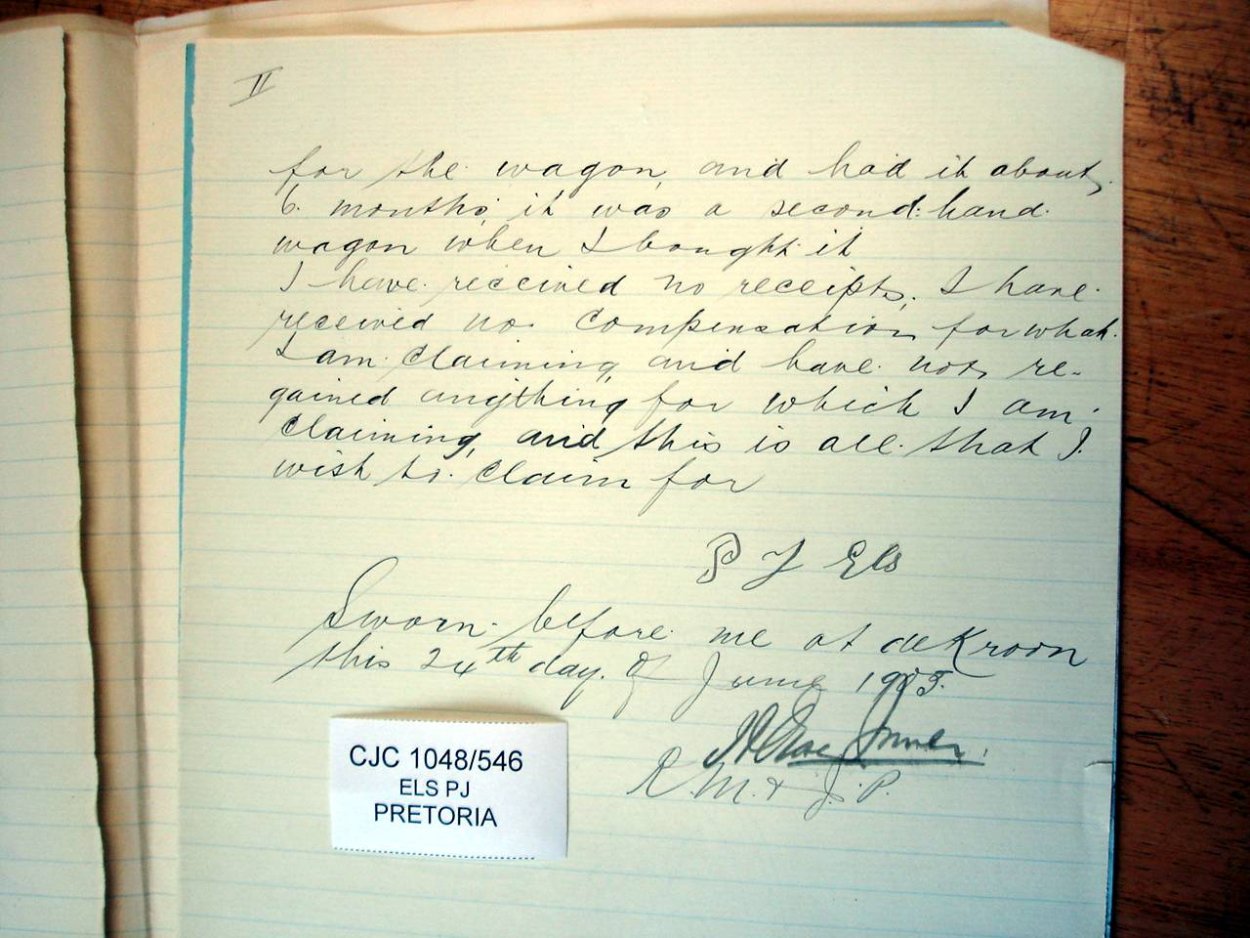 II
for the wagon, and had it about
6 months, it was a second-hand
wagon when I bought it
I have received no receipts, I have
received no compensation for what
I am claiming, and have not re-
gained anything for which I am
claiming, and this is all that I
wish to claim for
P J Els
Sworn before me at deKroon
this 24th day of June 1903.
R.M. & J.P.
CJC 1048/546
ELS PJ
PRETORIA